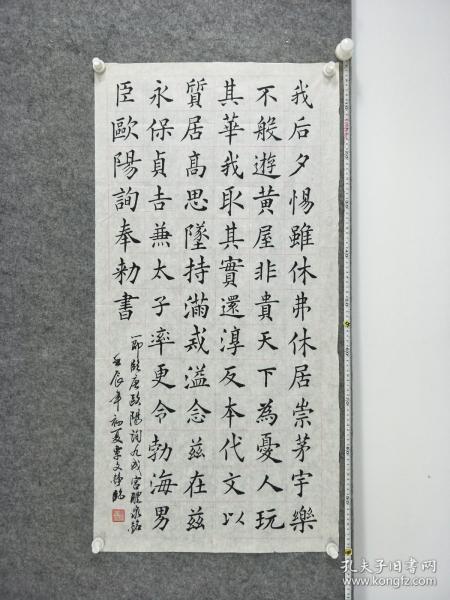 我后夕惕雖休弗休居崇茅宇樂
不般遊黄屋非貴天下為憂人玩
其華我取其實還淳反本代文以
質居高思墜持滿戒溢念兹在兹
永保貞吉兼太子率更令勃海男
臣歐陽詢奉勅書
節臨唐歐陽詢九成宮醴泉銘
壬辰年初夏栗文静臨
孔夫子旧书网